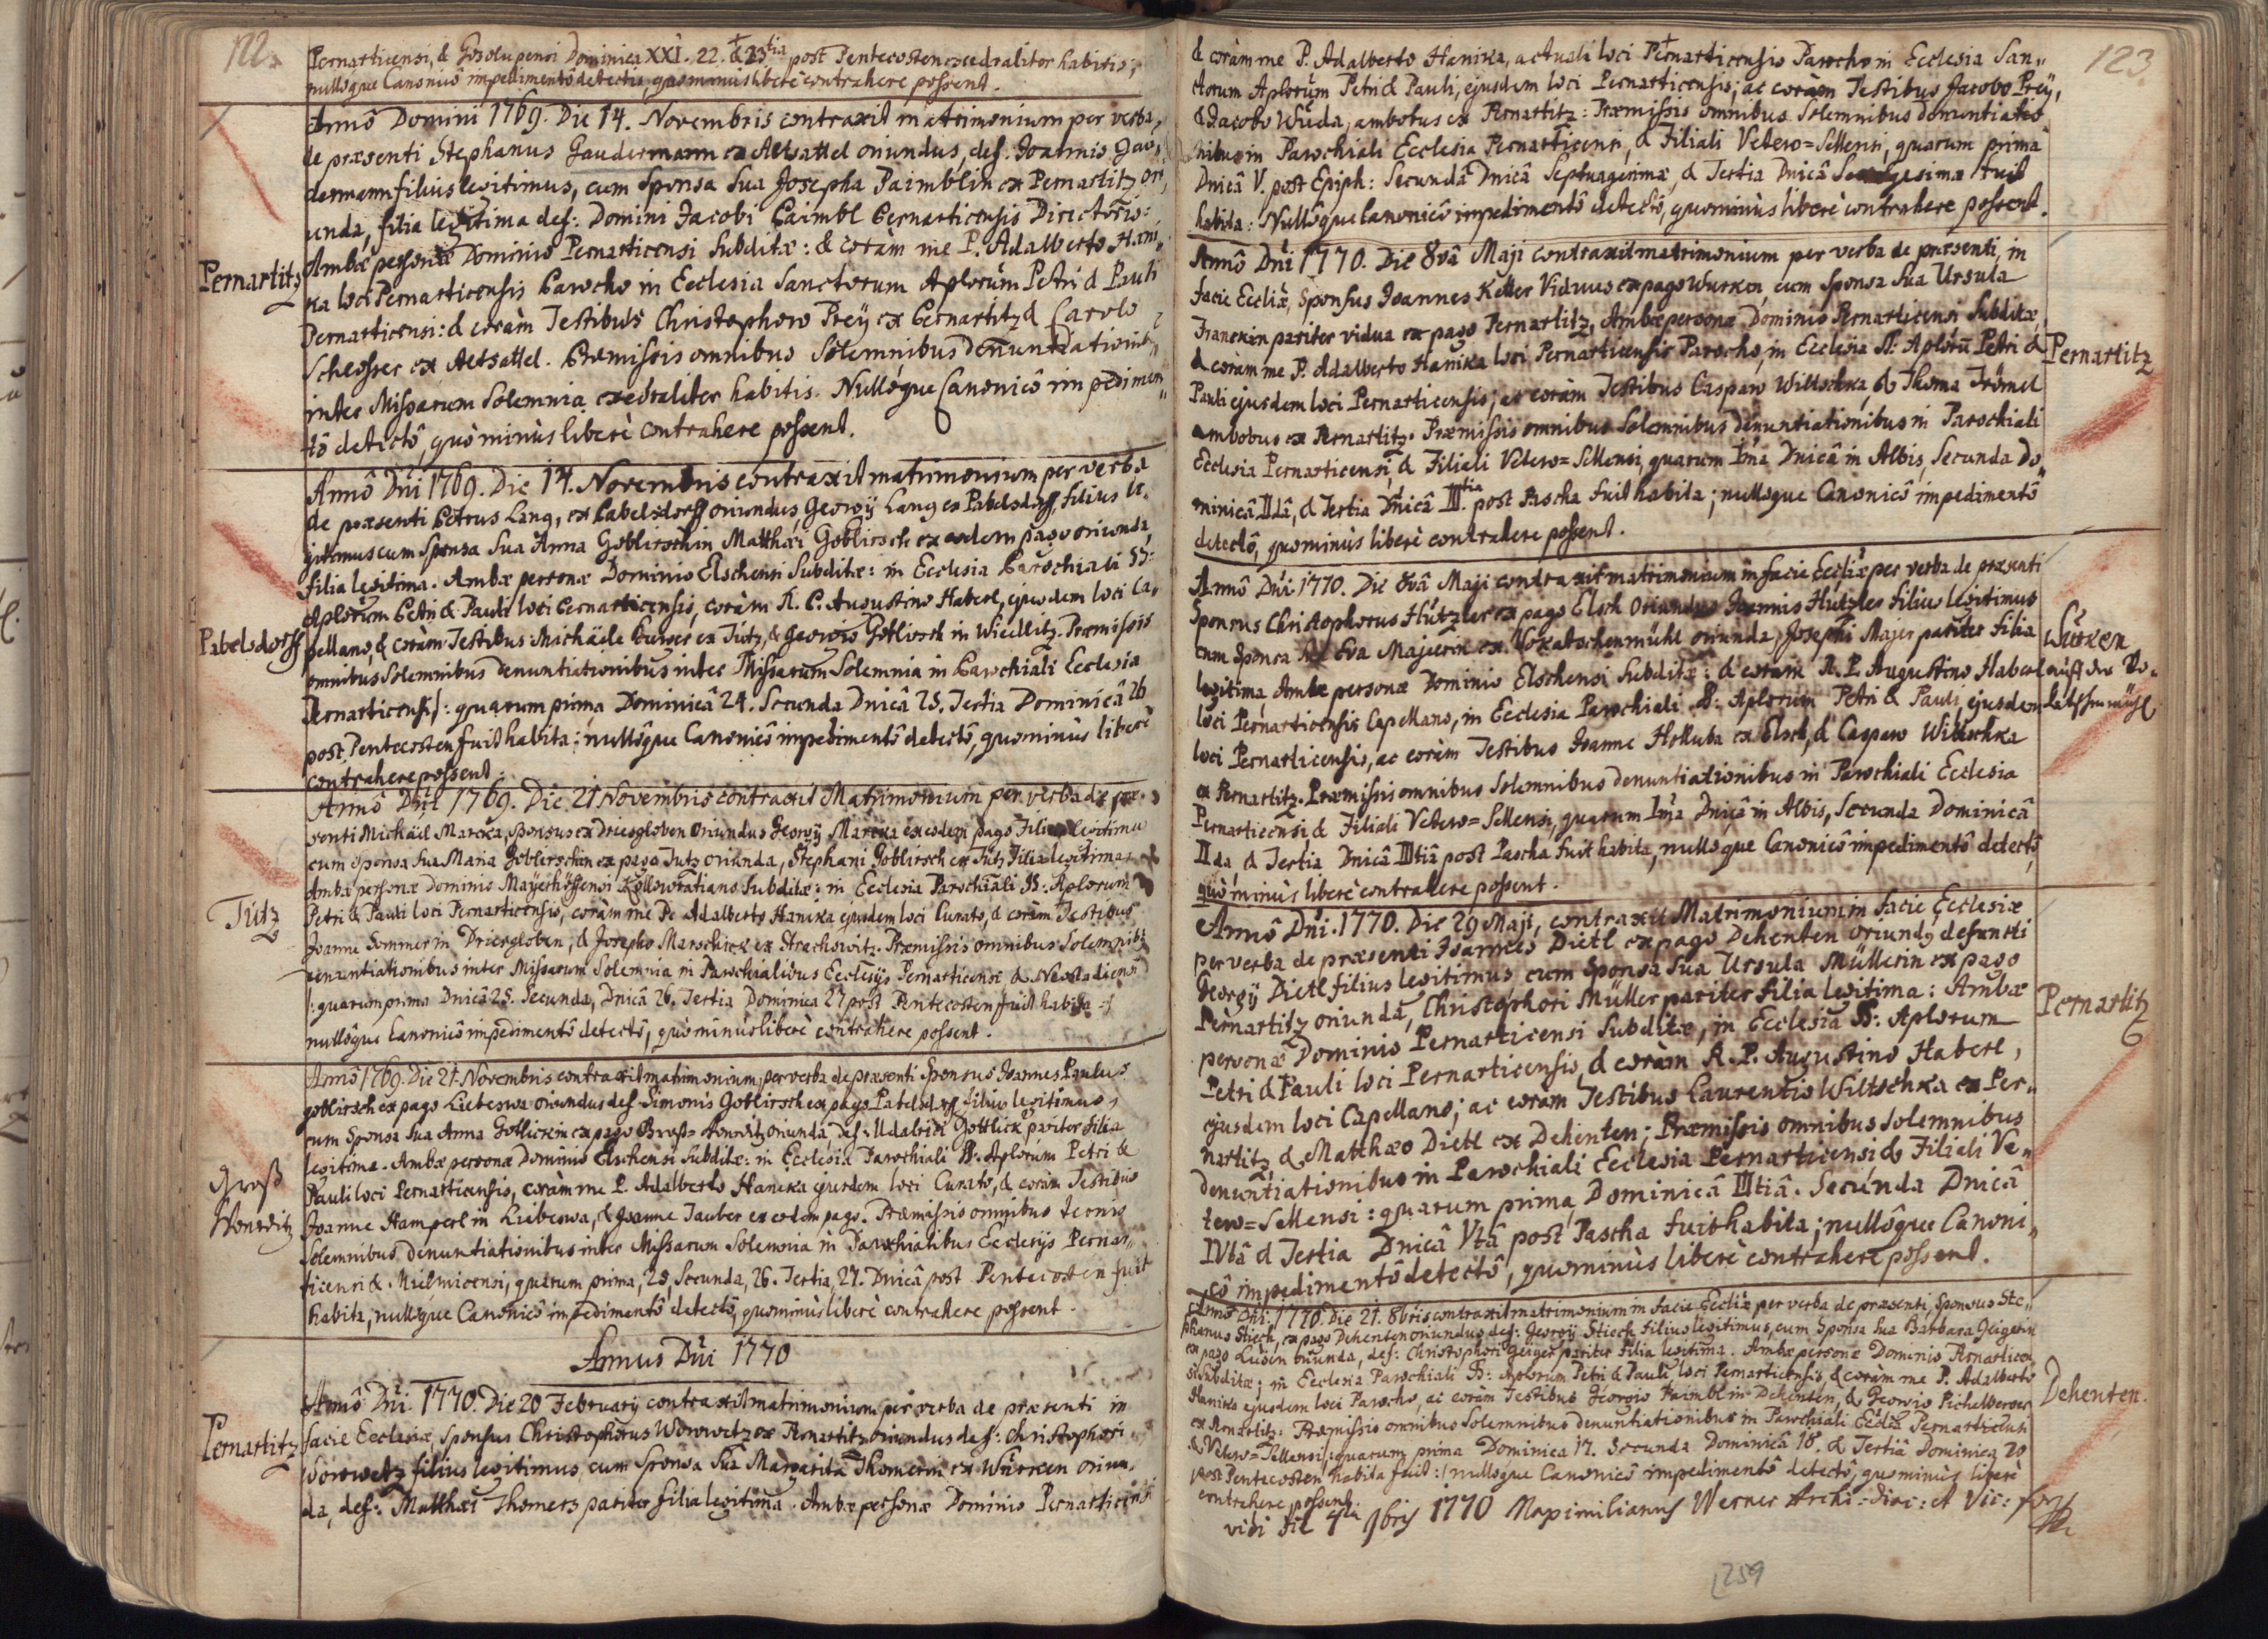 122.
Pernarticensi, & Gosolupensi Dominica XXI. 22. & 23tia post Pentecosten cathedraliter habitis;
nullôque Canonicô impedimentô detectô, quominus liberè contrahere possent.
Annô Domini 1769. Die 14. Novembris contraxit matrimonium per verba
de præsenti Stephanus Gaudermann ex Altsattel oriundus, def. Joannis Gau„
dermann filius legitimus, cum Sponsa Sua Josepha Paimblin ex Pernartitz ori„
unda, filia legitima def: Domini Jacobi Paimbl Pernarticensis Directoris:
Ambæ personæ Dominio Pernarticensi Subditæ: & coràm me P. Adalberto Hani„
ka loci Pernarticensis Parocho in Ecclesia Sanctorum Aplorum Petri & Pauli
Pernarticensi: & coràm Testibus Christophoro Preÿ ex Pernartitz & Carolo
Schlosser ex Altsattel. Præmissis omnibus Solemnibus Denuntiationib
inter Missarum Solemnia cathedraliter habitis. Nullôque Canonicô impedimen„
tô detectô, quò minùs liberè contrahere possent.
Pernartitz
Annô Dni 1769. Die 14. Novembris contraxit matrimonium per verba
de præsenti Petrus Lang, ex Pabelsdorff oriundus, Georgÿ Lang ex Pabelsdorff filius le„
gitimus cum Sponsa Sua Anna Goblirschin Matthæi Goblirsch ex eodem pago oriunda,
filia legitima. Ambæ personæ Dominio Elschensi Subditæ: in Ecclesia Parochiali SS:
Aplorum Petri & Pauli loci Pernarticensis, coràm R. P. Augustino Haberl, ejusdem loci Ca„
pellano, & coràm Testibus: Michäele Purger ex Tütz, & Georgio Goblirsch in Wiedlitz. Præmissis
omnibus Solemnibus denuntiationibus inter Missarum Solemnia in Parochiali Ecclesia
Pernarticensi /: quarum prima Dominicâ 24. Secunda Dnicâ 25. Tertia Dominicâ 26
post Pentecosten fuit habita; nullôque Canonicô impedimentô detectô, quominùs liberè
contrahere possent.
Pabelsdorff
Annô Dni 1769. Die 21 Novembris contraxit Matrimonium per verba de præ„
senti Michäel Marcka, Sponsus ex Driesgloben oriundus Georgÿ Marcka ex eodem pago Filius legitimus
cum Sponsa Sua Maria Goblirschin ex pago Tutz oriunda, Stephani Goblirsch ex Tutz Filia legitima:
Ambæ personæ Dominio Maÿerhöffensi Kollowratiano Subditæ: in Ecclesia Parochiali SS: Aplorum
Petri & Pauli loci Pernarticensis, coràm me P. Adalberto Hanika ejusdem loci Curato, & coràm Testibus
Joanne Sommer in Driesgloben, & Josepho Marschick ex Strachowitz. Præmissis omnibus Solemnib
denuntiationibus inter Missarum Solemnia in Parochialibus Ecclesÿs Pernarticensi & Neostadiensi
/: quarum prima Dnicâ 25. Secunda, Dnicâ 26. Tertia Dominica 27 post Pentecosten fuit habita :/
nullôque Canonicô impedimentô detectô, quò minùs liberè contrahere possent.
Tütz
Annô 1769. Die 21. Novembris contraxit matrimonium, per verba de præsenti Sponsus Joannes Paulus
goblirsch ex pago Liebeswa oriundus def. Simonis Goblirsch ex pago Pabelsdorff filius legitimus,
cum Sponsa Sua Anna Gottlickin ex pago Gross= Wonetitz oriunda, def. Udalrici Gottlick pariter filia
legitima. Ambæ personæ Dominio Elschensi Subditæ: in Ecclesia Parochiali SS. Aplorum Petri &
Pauli loci Pernarticensis, coràm me P. Adalberto Hanika ejusdem loci Curato, & coràm Testibus
Joanne Hamperl in Liebeswa, & Joanne Tauber ex eodem pago. Præmissis omnibus ternis
Solemnibus denuntiationibus inter Missarum Solemnia in Parochialibus Ecclesÿs Pernar„
ticensi & Mielnicensi, quarum prima, 25, Secunda, 26. Tertia, 27. Dnicâ post Pentecosten fuit
habita, nullôque Canonicô impedimentô detectô, quominùs liberè contrahere possent.
Groß
Wonetitz
Annus Dni 1770
Annô Dni 1770. Die 20 Februarÿ contraxit matrimonium per verba de præsenti in
facie Ecclesiæ, Sponsus Christophorus Worowetz ex Pernartitz oriundus def: Christophori
Worowetz filius legitimus, cum Sponsa Sua Margarita Thomerin ex Wurken oriun„
da, def: Matthæi Thomers pariter filia legitima. Ambæ personæ Dominio Pernarticensi
Pernartitz
123.
& coràm me P. Adalberto Hanika, actuali loci Pernarticensis Parocho in Ecclesia San„
ctorum Aplorum Petri & Pauli, ejusdem loci Pernarticensis, ac coràm Testibus Jacobo Preÿ,
& Jacobo Wuda, ambobus ex Pernartitz: Præmissis omnibus Solemnibus denuntiatio
nibus in Parochiali Ecclesia Pernarticensi, & Filiali Vetero=Sellensi, quarum prima
Dnicâ V. post Epiph: Secundâ Dnicâ Septuagesimæ, & Tertia Dnicâ Sexagesimæ fuit
habita: Nullôque Canonicô impedimentô detectô, quominùs liberè contrahere possent.
Annô Dni 1770. Die 8vâ Maji contraxit matrimonium per verba de præsenti, in
facie Eccliæ, Sponsus Joannes Keller Viduus ex pago Wurken, cum Sponsa Sua Ursula
Franckin pariter vidua ex pago Pernartitz, Ambæ personæ Dominio Pernarticensi Subditæ,
& coràm me P. Adalberto Hanika loci Pernarticensis Parocho, in Ecclesia SS: Aplorū Petri &
Pauli ejusdem loci Pernarticensis, ac coràm Testibus Casparo Willschka, & Thoma Trömel
ambobus ex Pernartitz. Præmissis omnibus Solemnibus denuntiationibus in Parochiali
Ecclesia Pernarticensi, & Filiali Vetero=Sellensi, quarum Ima Dnicâ in Albis, Secunda Do„
minicâ IIdâ, & Tertia Dnicâ IIItia post Pascha fuit habita; nullôque Canonicô impedimentô
detectô, quominùs liberè contrahere possent.
Pernartitz
Annô Dni 1770. Die 8vâ Maji contraxit matrimonium in facie Eccliæ per verba de præsenti
Sponsus Christophorus Hutzler ex pago Elsch Oriundus Joannis Hutzler filius legitimus
cum Sponsa Sua Eva Majerin ex Wokatschenmühl oriunda, Josephi Majer pariter filia
legitima, Ambæ personæ Dominio Elschensi Subditæ: & coràm R. P. Augustino Haberl
loci Pernarticensis Capellano, in Ecclesia Parochiali SS: Aplorum Petri & Pauli, ejusdem
loci Pernarticensis, ac coràm Testibus Joanne Holluba ex Elsch, & Casparo Willschka
ex Pernartitz. Præmissis omnibus Solemnibus denuntiationibus in Parochiali Ecclesia
Pernarticensi & Filiali Vetero=Sellensi, quarum Ima Dnicâ in Albis, Secunda Dominicâ
IIda, & Tertia Dnicâ IIItiâ post Pascha fuit habita, nullôque Canonicô impedimentô detectô,
quò minùs liberè contrahere possent.
Würken
auf der Wo„
katschenmühl
Annô Dni. 1770. Die 29 Maji, contraxit Matrimonium in facie Ecclesiæ
per verba de præsenti Joannes Dietl ex pago Dehenten oriundg defuncti
Georgÿ Dietl filius legitimus, cum Sponsa Sua Ursula Müllerin ex pago
Pernartitz oriunda, Christophori Müller pariter filia legitima: Ambæ
personæ Dominio Pernarticensi Subditæ, in Ecclesia SS: Aplorum
Petri & Pauli loci Pernarticensis, & coràm R. P. Augustino Haberl,
ejusdem loci Capellano; ac coràm Testibus Laurentio Wiltschka ex Per„
nartitz, & Matthæo Dietl ex Dehenten; Præmissis omnibus Solemnibus
denuntiationibus in Parochiali Ecclesia Pernarticensi & Filiali Ve„
tero=Sellensi: quarum prima Dominicâ IIItiâ. Secunda Dnicâ
IVtâ & Tertia Dnicâ Vtâ post Pascha fuit habita; nullôque Canoni„
cô impedimentô detectô, quominùs liberè contrahere possent.
Pernartitz
Annô Dni. 1770. Die 21. 8bris contraxit matrimonium in facie Eccliæ per verba de præsenti, Sponsus Ste„
phanus Stiech, ex pago Dehenten oriundus def: Georgÿ Stiech filius legitimus, cum Sponsa Sua Barbara Geigerin
ex pago Lusen oriunda, def: Christophori Geiger pariter filia legitima. Ambæ personæ Dominio Pernarticen„
si Subditæ; in Ecclesia Parochiali SS: Aplorum Petri & Pauli loci Pernarticensis, & coràm me P. Adalberto
Hanika ejusdem loci Parocho, ac coràm Testibus Georgio Paimbl in Dehenten, & Georgio Pichelberger
ex Pernartitz. Præmissis omnibus Solemnibus denuntiationibus in Parochiali Ecclia Pernarticensi
& Vetero=Sellensi /: quarum prima Dominica 17. Secunda Dominicâ 18. & Tertiâ Dominica 20
post Pentecosten habita fuit :/ nullôque Canonicô impedimentô detectô, quominùs liberè
contrahere possent.
Dehenten.
vidi die 4ta 9bris 1770 Maximilianus Werner Archi=diac: et Vic: for
259